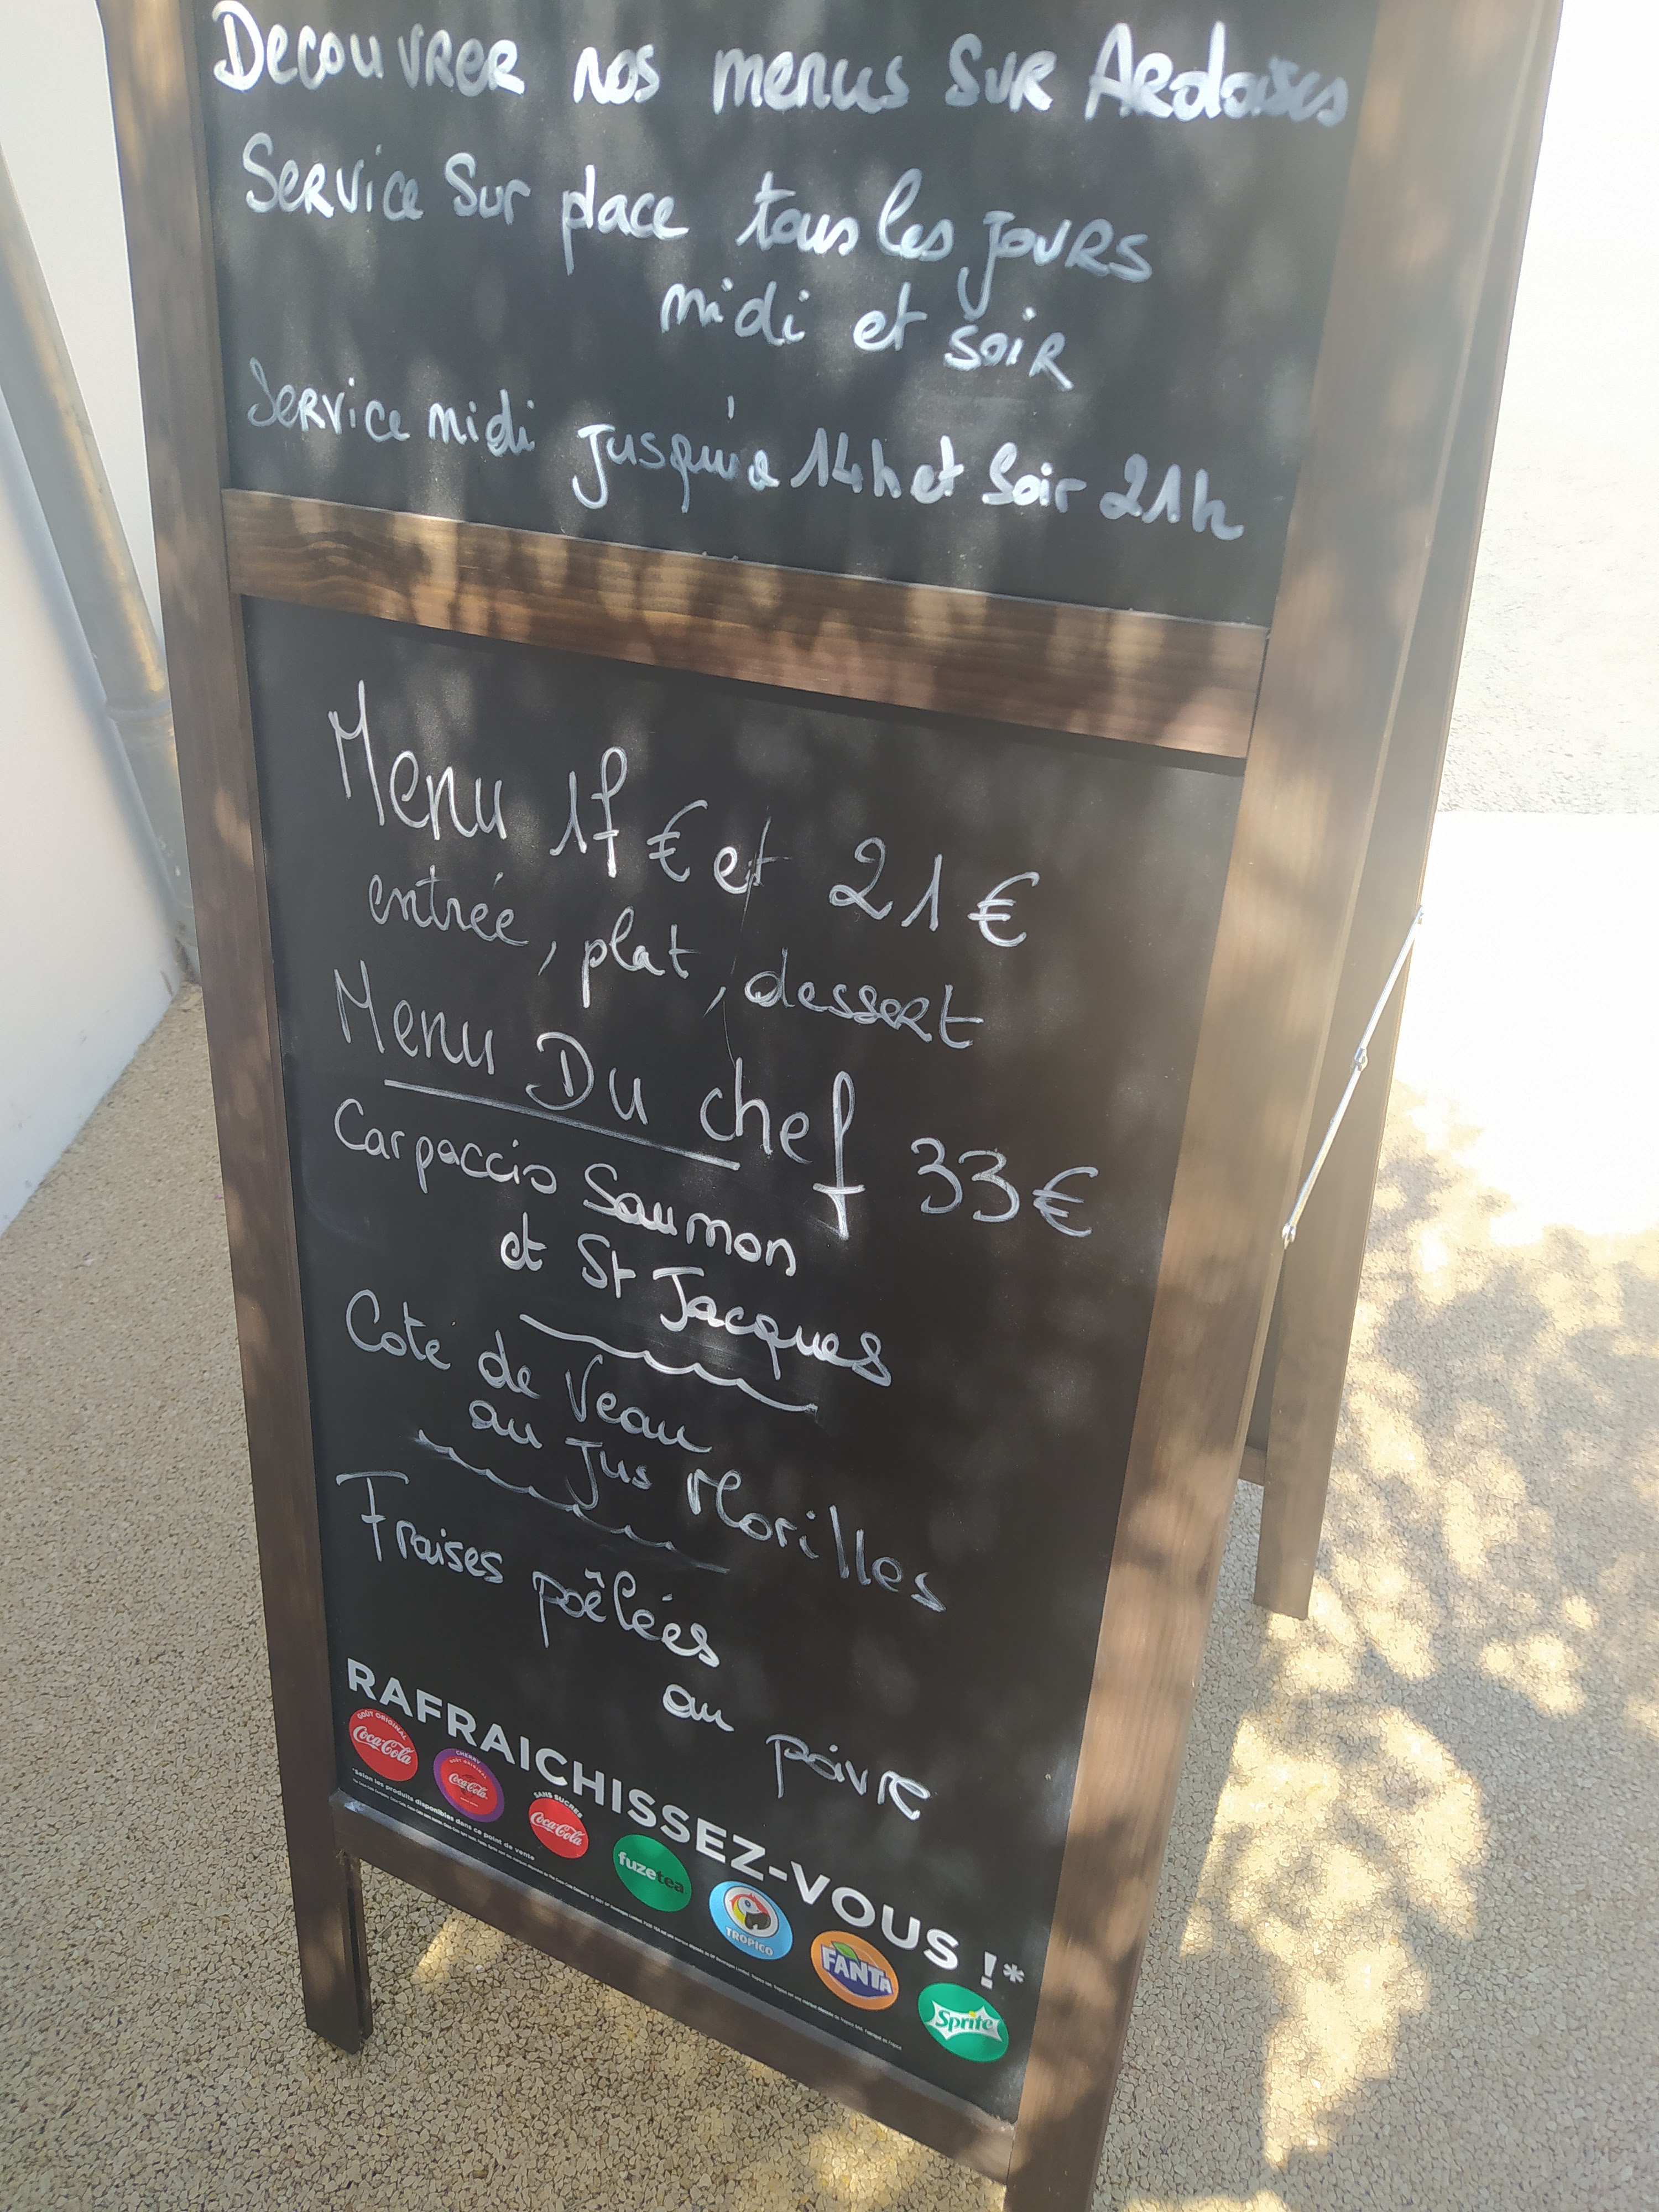 Decouvrer nos menus sur Ardoises
Service sur place tous les jours
midi et soir
Service midi jusqu'a 14h et Soir 21h
Menu 17€ et 21€
entrée, plat, dessert
Menu Du chef 33€
Carpaccio Saumon
et St Jacques
Cote de Veau
au Jus Morilles
Fraises poêlées
au poivre
RAFRAICHISSEZ-VOUS !*
GOÛT ORIGINAL
Coca-Cola
CHERRY
GOÛT ORIGINAL
Coca-Cola
SANS SUCRES
Coca-Cola
fuzetea
TROPICO
FANTA
Sprite
*Selon les produits disponibles dans ce point de vente